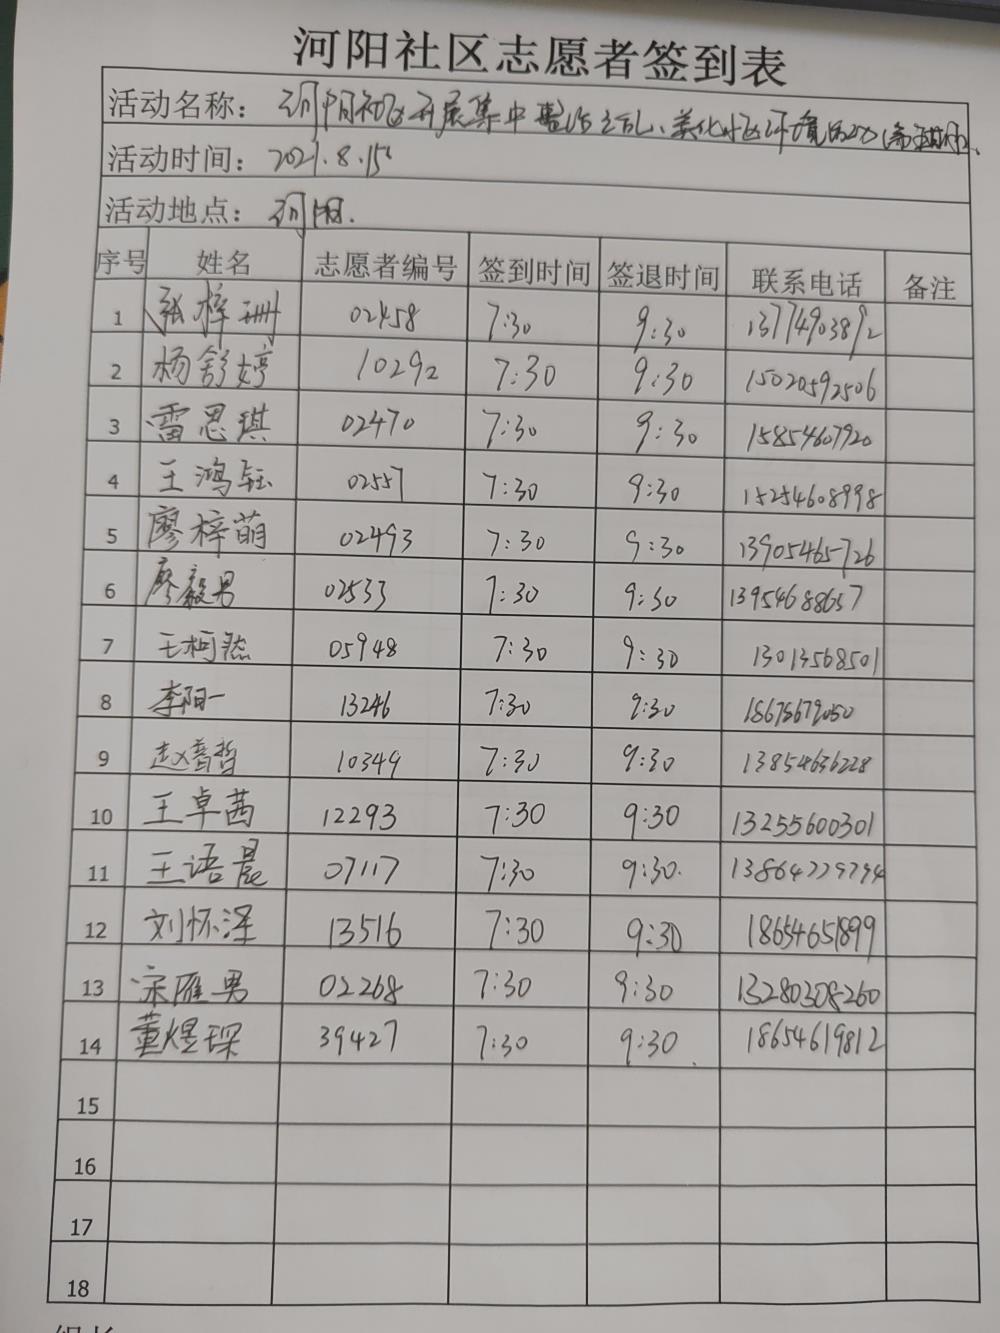 河阳社区志愿者签到表
活动名称： 河阳社区开展集中整治乱、美化小区环境
活动时间： 2021.8.15
活动地点： 河阳.
序号 姓名 志愿者编号 签到时间 签退时间 联系电话 备注
1 张梓珊 02458 7:30 9:30 13774903892
2 杨舒婷 10292 7:30 9:30 15020592506
3 雷思琪 02470 7:30 9:30 15854607920
4 王鸿钰 02557 7:30 9:30 15254608998
5 廖梓萌 02493 7:30 9:30 13905465726
6 廖毅男 02533 7:30 9:30 13954688657
7 王柯然 05948 7:30 9:30 13013568501
8 李阳一 13246 7:30 9:30 18675679050
9 赵 哲 10349 7:30 9:30 13854636228
10 王卓茜 12293 7:30 9:30 13255600301
11 王语晨 07117 7:30 9:30.
12 刘怀泽 13516 7:30 9:30 18654651899
13 宋雁男 02268 7:30 9:30 13280308260
14 董煜琛 39427 7:30 9:30 18654619812
15
16
17
18